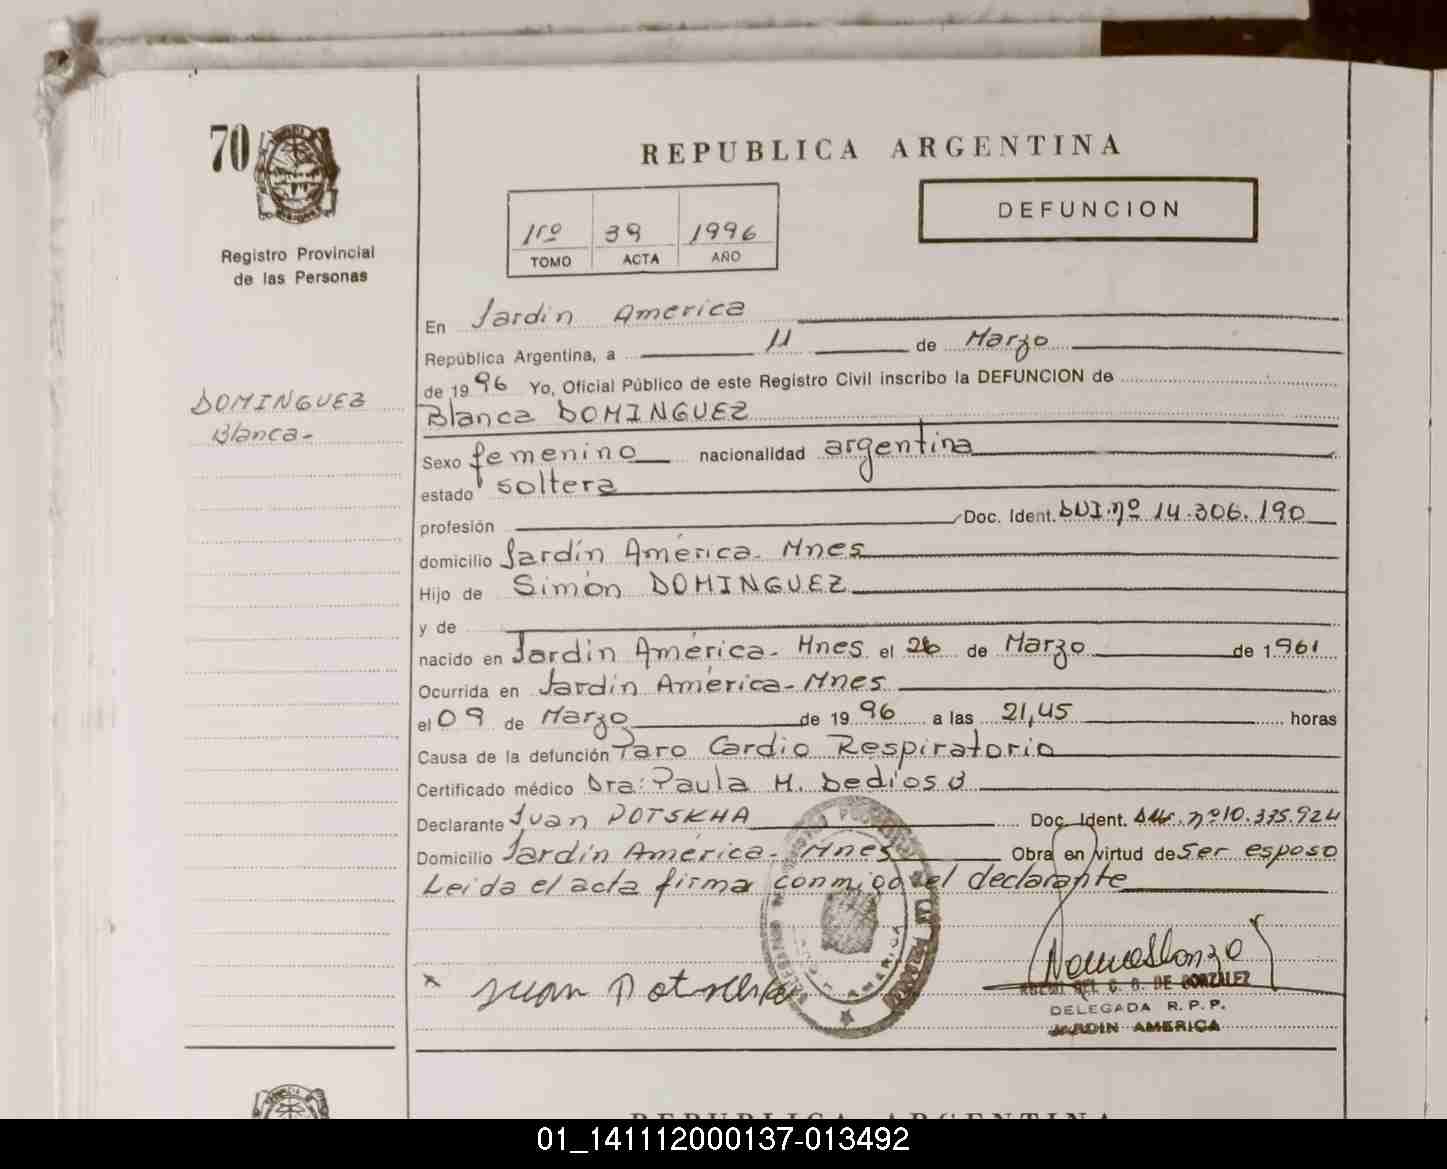 70
REPUBLICA ARGENTINA
DEFUNCION
1ro 39 1996
TOMO ACTA AÑO
Registro Provincial
de las Personas
DOMINGUEZ
Blanca-
En Jardin America
República Argentina, a 11 de Marzo
de 1996 Yo, Oficial Público de este Registro Civil inscribo la DEFUNCION de
Blanca DOMINGUEZ
Sexo femenino nacionalidad argentina
estado soltera
profesión Doc. Ident. DNI.nº 14.306.190
domicilio Jardín América- Mnes
Hijo de Simón DOMINGUEZ
y de
nacido en Jardin América- Mnes el 26 de Marzo de 1961
Ocurrida en Jardin América- Mnes
el 09 de Marzo de 1996 a las 21,45 horas
Causa de la defunción Paro Cardio Respiratorio
Certificado médico Dra: Paula M. Dedios
Declarante Juan POTSKHA Doc. Ident. nº10.335.924
Domicilio Jardín América- Mnes Obra en virtud de ser esposo
Leida el acta firma conmigo el declarante
x Juan
DE GONZALEZ
DELEGADA R.P.P.
JARDIN AMERICA
REPUBLICA ARGENTINA
01_141112000137-013492